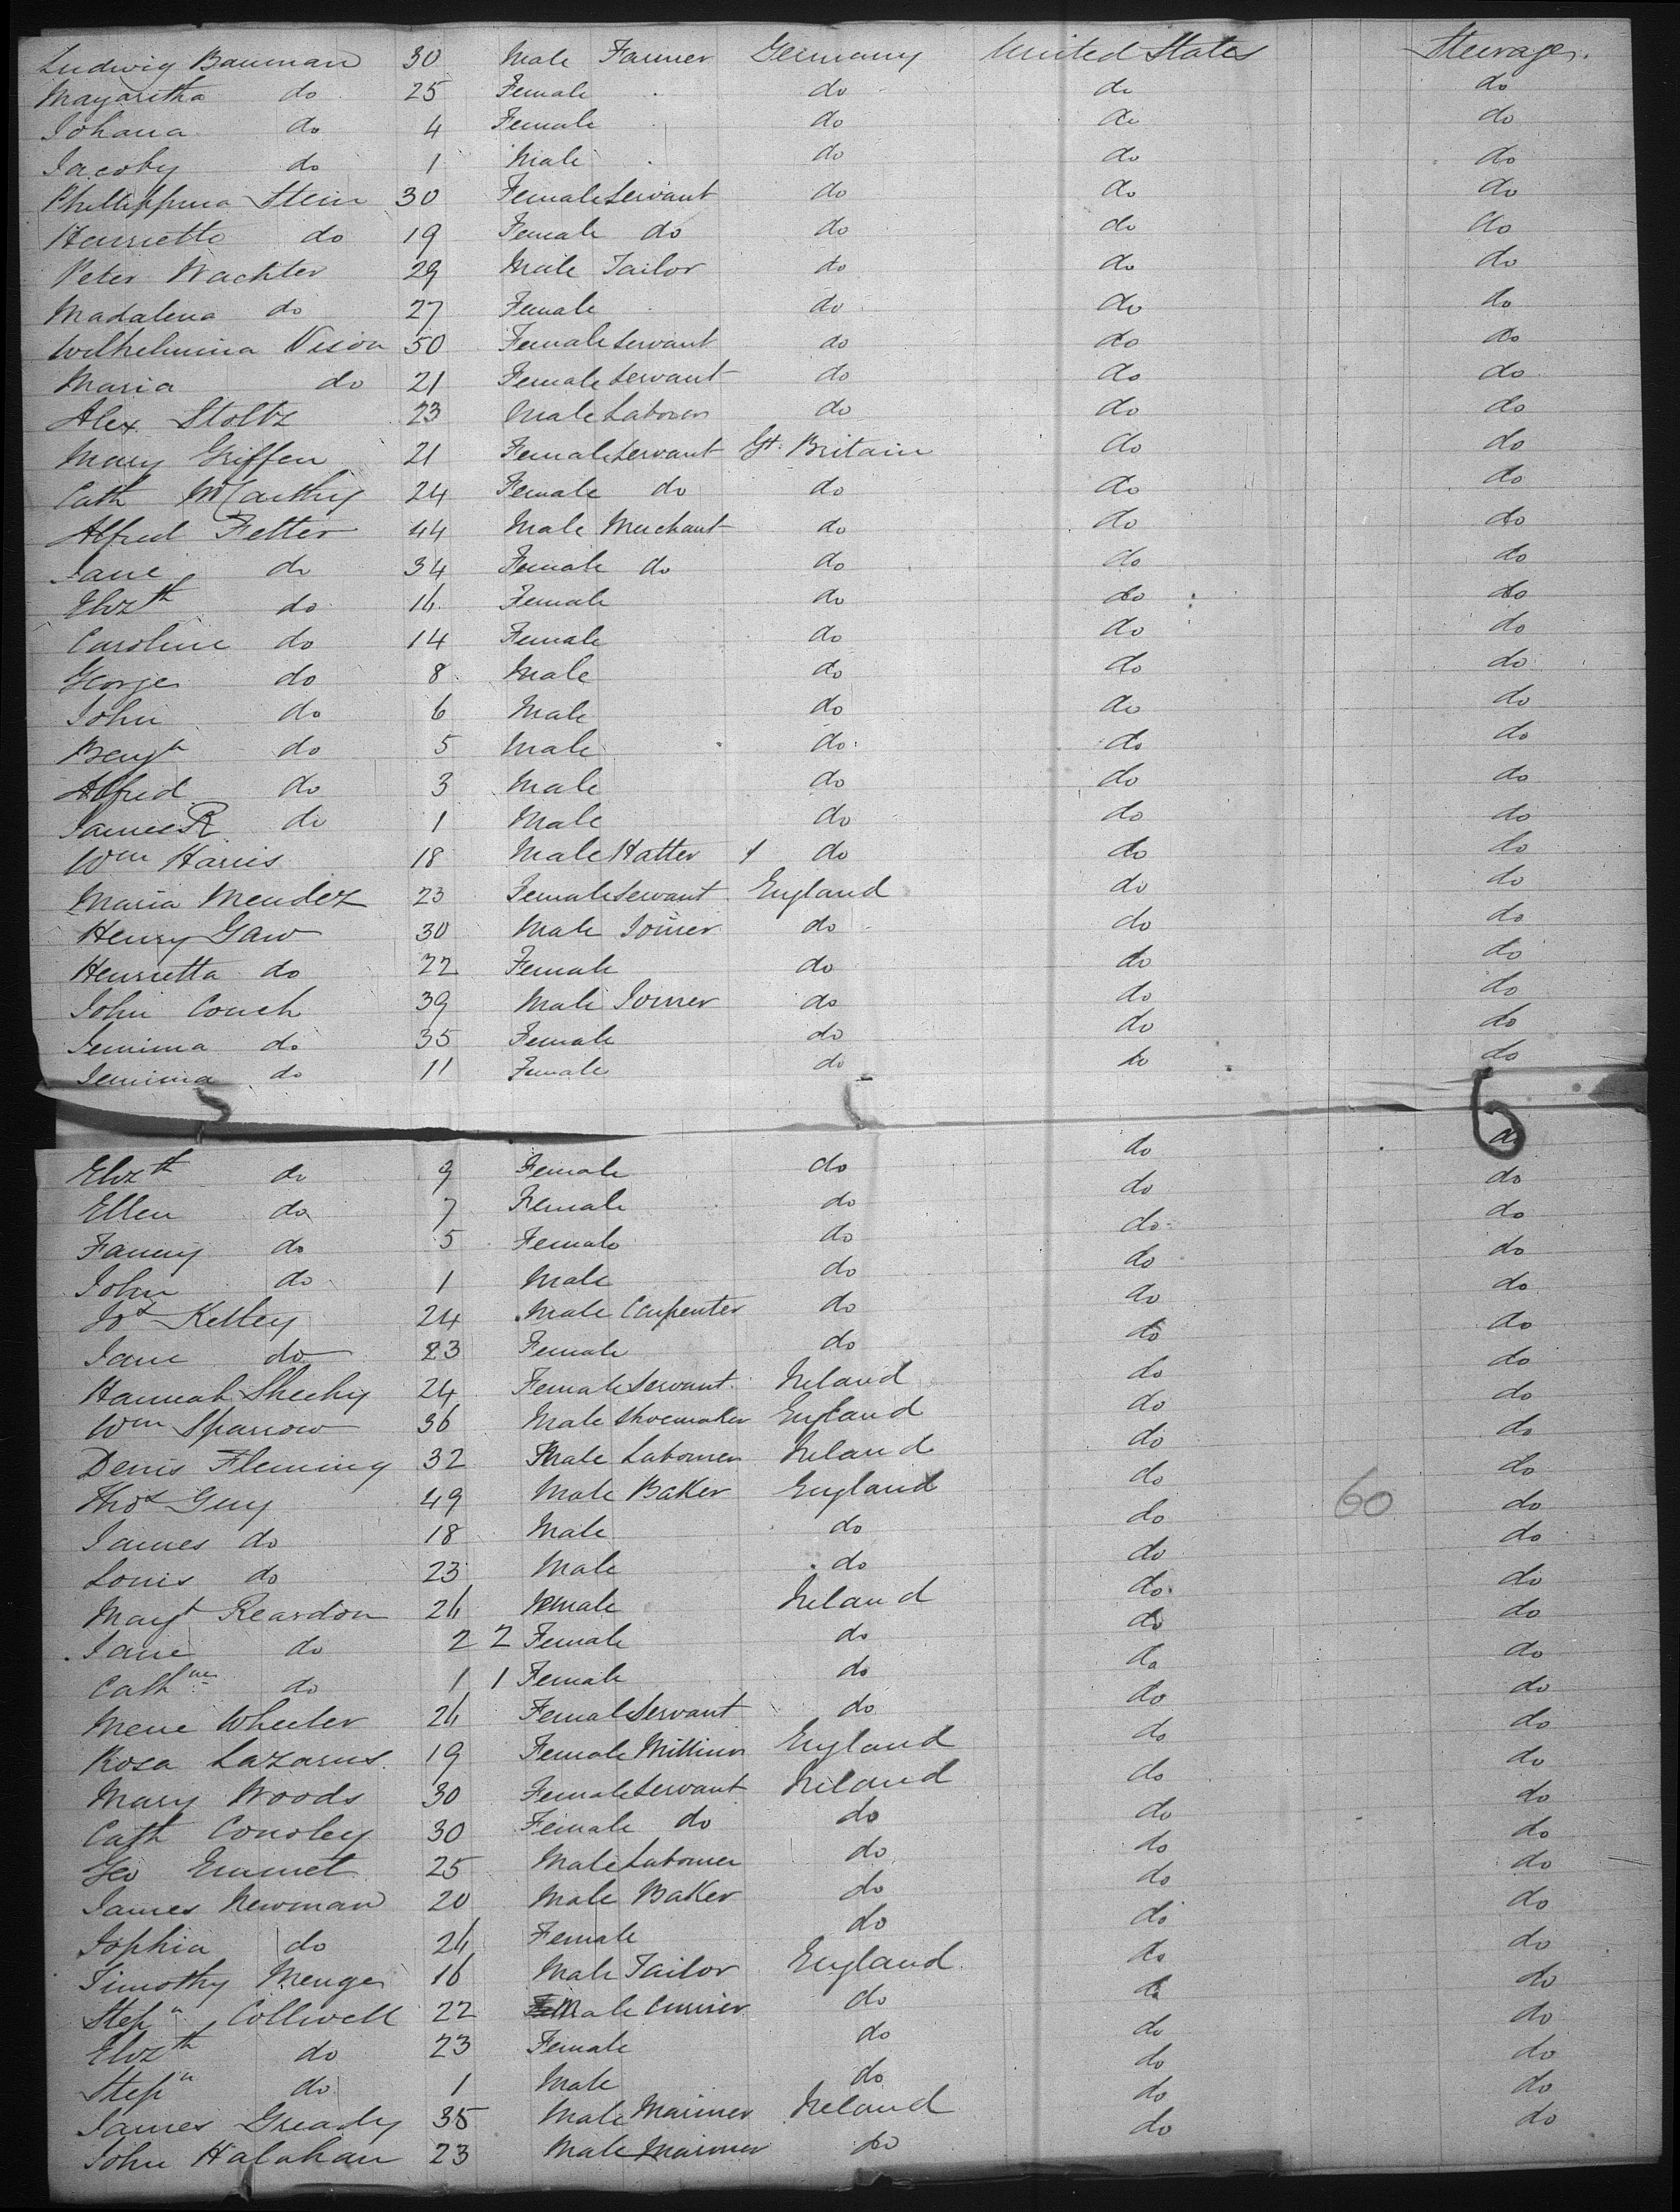 Ludwig Bauman 30 Male Farmer Germany United States Steerage.
Magaretha do 25 Female do do do
Johana do 4 Female do do do
Jacoby do 1 Male do do do
Phillippina Stein 30 Female Servant do do do
Henrietta do 19 Female do do do do
Peter Wachter 29 Male Tailor do do do
Madalena do 27 Female do do do
Wilhelmina 50 Female Servant do do do
Maria do 21 Female Servant do do do
Alex Stoltz 23 Male Laborer do do do
Mary Griffen 21 Female Servant Gt. Britain do do
Cath McCarthy 24 Female do do do do
Alfred Fetter 44 Male Merchant do do do
Jane do 34 Female do do do do
Elizth do 16 Female do do do
Caroline do 14 Female do do do
George do 8 Male do do do
John do 6 Male do do do
Benjn do 5 Male do do do
Alfred do 3 Male do do do
James R do 1 Male do do do
Wm Harris 18 Male Hatter do do do
Maria Mendez 23 Female Servant England do do
Henry Gaw 30 Male Joiner do do do
Henrietta do 22 Female do do do
John Couch 39 Male Joiner do do do
Jemima do 35 Female do do do
Jemima do 11 Female do do do
Elizth do 9 Female do do do
Ellen do 7 Female do do do
Fanny do 5 Female do do do
John do 1 Male do do do
Jos Kelley 24 Male Carpenter do do do
Jane do 23 Female do do do
Hannah Sheehy 24 Female Servant Ireland do do
Wm Sparrow 36 Male Shoemaker England do do
Denis Fleming 32 Male Laborer Ireland do do
Thos Guy 49 Male Baker England do 60 do
James do 18 Male do do do
Louis do 23 Male do do do
Margt Reardon 26 Female Ireland do do
Jane do 2 2 Female do do do
Cathne do 1 1 Female do do do
Wheeler 26 Female Servant do do do
Rosa Lazarus 19 Female Milliner England do do
Mary Woods 30 Female Servant Ireland do do
Cath Conoley 30 Female do do do do
Geo Emmet 25 Male Laborer do do do
James Newman 20 Male Baker do do do
Sophia do 26 Female do do do
Timothy Menge 16 Male Tailor England do do
Stepn Collwell 22 Male Currier do do do
Elizth do 23 Female do do do
Stepn do 1 Male do do do
James Gready 35 Male Mariner Ireland do do
John Halahan 23 Male Mariner do do do